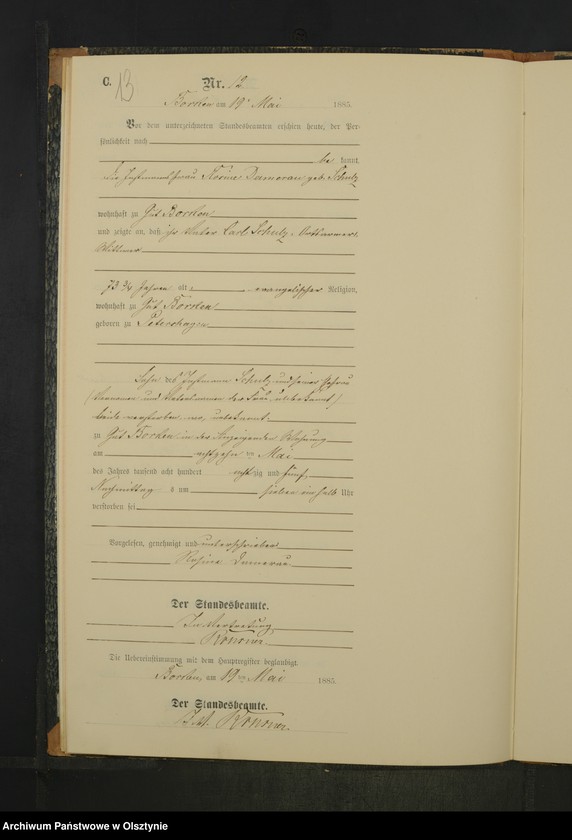 C. 13
Nr. 12
Borken am 19 Mai 1885.
Vor dem unterzeichneten Standesbeamten erschien heute, der Per-
sönlichkeit nach
be kannt,
die Instmannsfrau Rosine Damerau geb. Schulz
wohnhaft zu Gut Borken
und zeigte an, daß ihr Vater Carl Schulz, Ortsarmer,
Wittwer
73 3/4 Jahren alt, evangelischer Religion,
wohnhaft zu Gut Borken
geboren zu Petershagen
Sohn des Instmann Schulz und seiner Ehefrau
(Vornamen und der Frau unbekannt)
beide verstorben, wo, unbekannt.
zu Gut Borken in der Anzeigenden Wohnung
am achtzehn ten Mai
des Jahres tausend acht hundert achtzig und fünf,
Nachmittag s um sieben ein halb Uhr
verstorben sei
Vorgelesen, genehmigt und unterschrieben
Rosine Damerau
Der Standesbeamte.
In Vertretung
Die Uebereinstimmung mit dem Hauptregister beglaubigt.
Borken, am 19 ten Mai 1885.
Der Standesbeamte.
I.V.
Archiwum Państwowe w Olsztynie